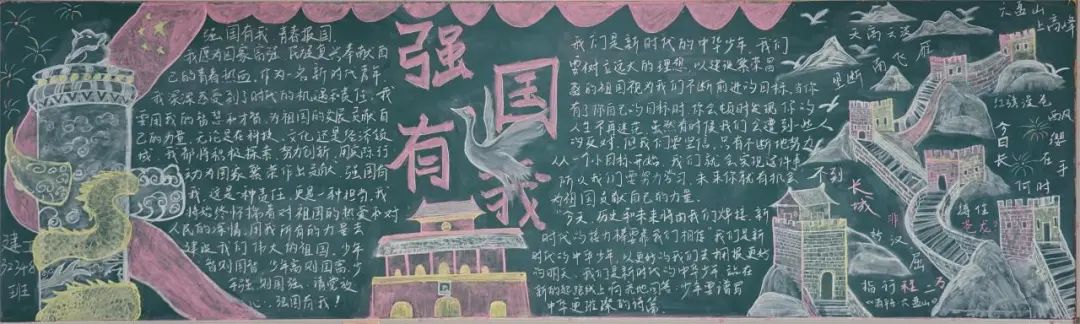 强国有我 青春报国
我愿为国家富强、民族复兴奉献自
己的青春热血。作为一名新时代青年,
我深深感受到了时代的机遇和责任,我
要用我的智慧和才智,为祖国的发展贡献自
己的力量,无论是在科技、文化还是经济领
域,我都将积极探索,努力创新,用实际行
动为国家繁荣作出贡献。强国有
我,这是一种责任,更是一种担当,我
将始终怀揣着对祖国的热爱和对
人民的深情,用我所有的力量去
建设我们伟大的祖国,少年
智则国智,少年富则国富,少
年强则国强,请党放
心,强国有我!
建
32348
班
强国
有我
我们是新时代的中华少年,我们
要树立远大的理想,以建设繁荣昌
盛的祖国视为我们不断前进的目标,当你
有了你自己的目标时,你会顿时发现你的
人生不再迷茫。虽然有时候我们会遭到他人
的反对,但我们要坚信,只有不断地努力
从一个小目标开始,我们就会实现这件事
所以我们要努力学习,未来你就有机会
为祖国贡献自己的力量。
今天,历史和未来将由我们焊接,新
时代的接力棒需靠我们相传"我们是新
时代的中华少年,以更好的我们去拥抱更好
的明天。我们是新时代的中华少年,站在
新的起跑线上,向天地回答:少年要谱写
中华更璀璨的诗篇。
天高云淡
望断南飞雁
不到长城非好汉
屈指行程二万
六盘山上高峰
红旗漫卷西风
今日长缨在手
何时缚住苍龙
《清平乐·六盘山》